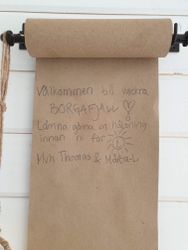 Välkommen till vackra
BORGAFJÄLL!
Lämna gärna en hälsning
innan ni får
Mvh Thomas &